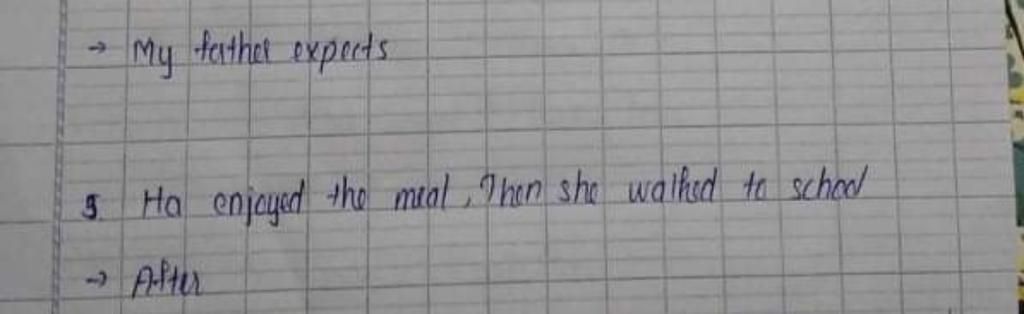 → My father expects
5. Ha enjoyed the meal, Then she walked to school
→ After